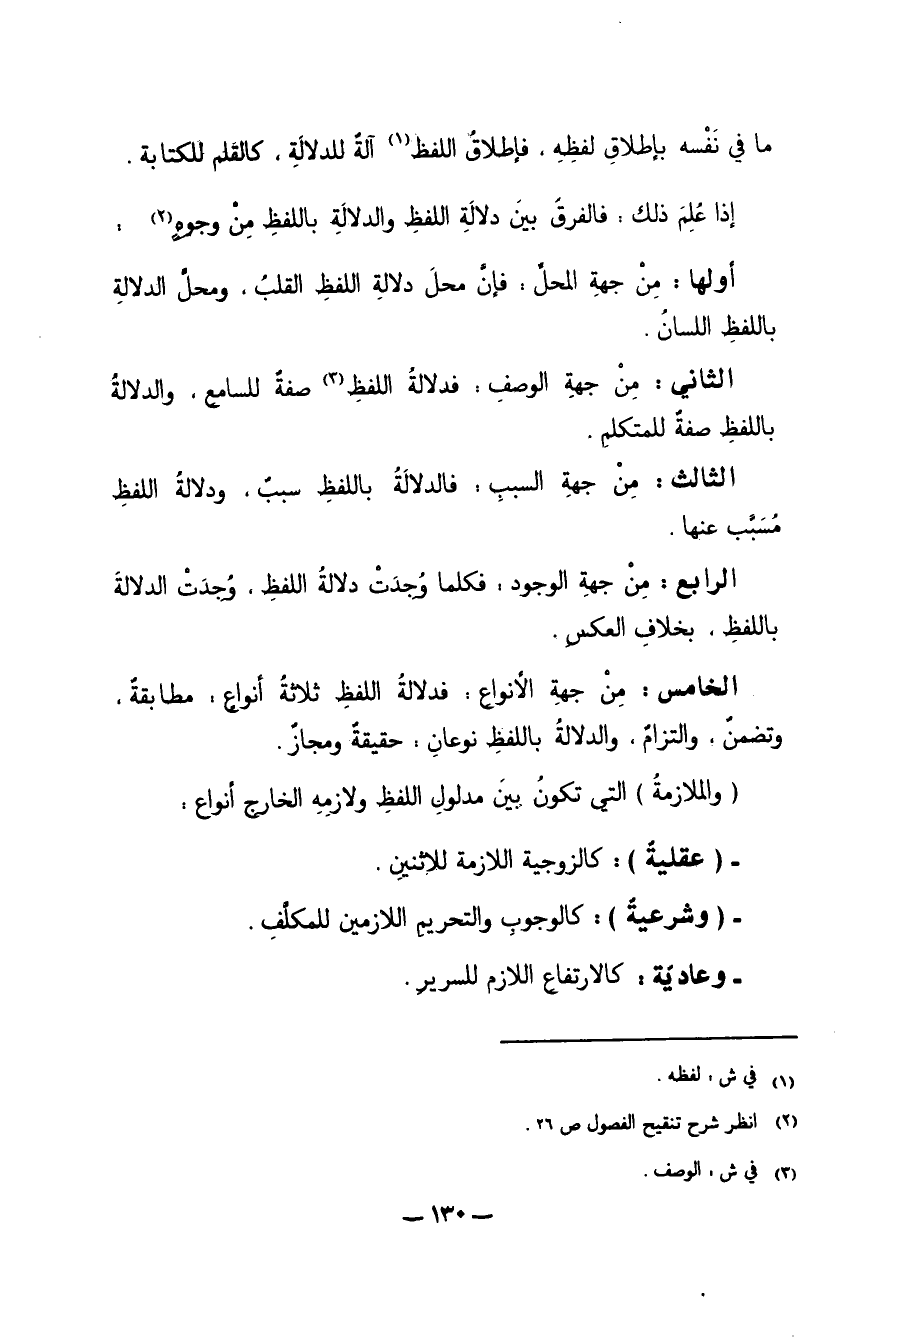 ما في نَفْسه بإطلاقِ لفظِهِ ، فإطلاقُ اللفظ(١) آلةٌ للدلالَةِ ، كالقَلم للكتابة .
إذا عُلِمَ ذلك : فالفرقَ بينَ دلالَةِ اللفظِ والدلالَةِ باللفظِ مِنْ وجوهٍ(٢) :
أولها : مِنْ جهةِ المحلِّ : فإنَّ محلَ دلالةِ اللفظِ القلبُ ، ومحلَّ الدلالةِ
باللفظِ اللسانُ .
الثاني : مِنْ جهةِ الوصفِ : فدلالةُ اللفظِ(٣) صفةٌ للسامع ، والدلالةُ
باللفظِ صفةٌ للمتكلمِ .
الثالث : مِنْ جهةِ السببِ : فالدلالَةُ باللفظِ سببٌ ، ودلالةُ اللفظِ
مُسَبَّب عنها .
الرابع : مِنْ جهةِ الوجود : فكلما وُجِدَتْ دلالةُ اللفظِ ، وُجِدَتْ الدلالةَ
باللفظِ ، بخلافِ العكسِ .
الخامس : مِنْ جهةِ الأنواعِ : فدلالةُ اللفظِ ثلاثةُ أنواعٍ : مطابقةٌ ،
وتضمنٌ ، والتزامٌ ، والدلالةُ باللفظِ نوعانِ : حقيقةٌ ومجازٌ .
( والملازمةُ ) التي تكونُ بينَ مدلولِ اللفظِ ولازمِهِ الخارجِ أنواع :
ـ ( عقليةٌ ) : كالزوجية اللازمة للاِثنينِ .
ـ ( وشرعيةٌ ) : كالوجوبِ والتحريمِ اللازمين للمكلَّفِ .
ـ وعاديّة : كالارتفاعِ اللازم للسريرِ .
(١) في ش : لفظه .
(٢) انظر شرح تنقيح الفصول ص ٢٦ .
(٣) في ش : الوصف .
— ١٣٠ —